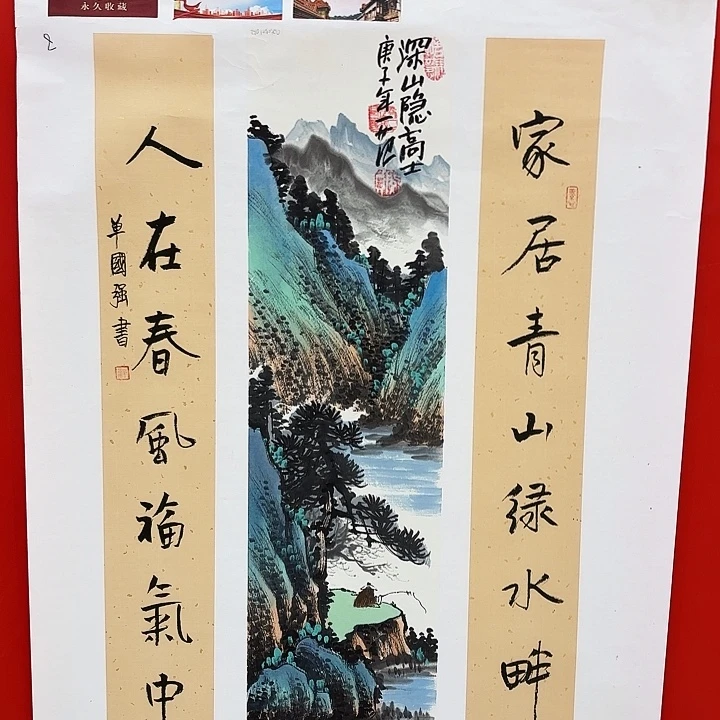 永久收藏
深山隐高士
庚子年
家居青山绿水畔
人在春风福氣中
单國强書